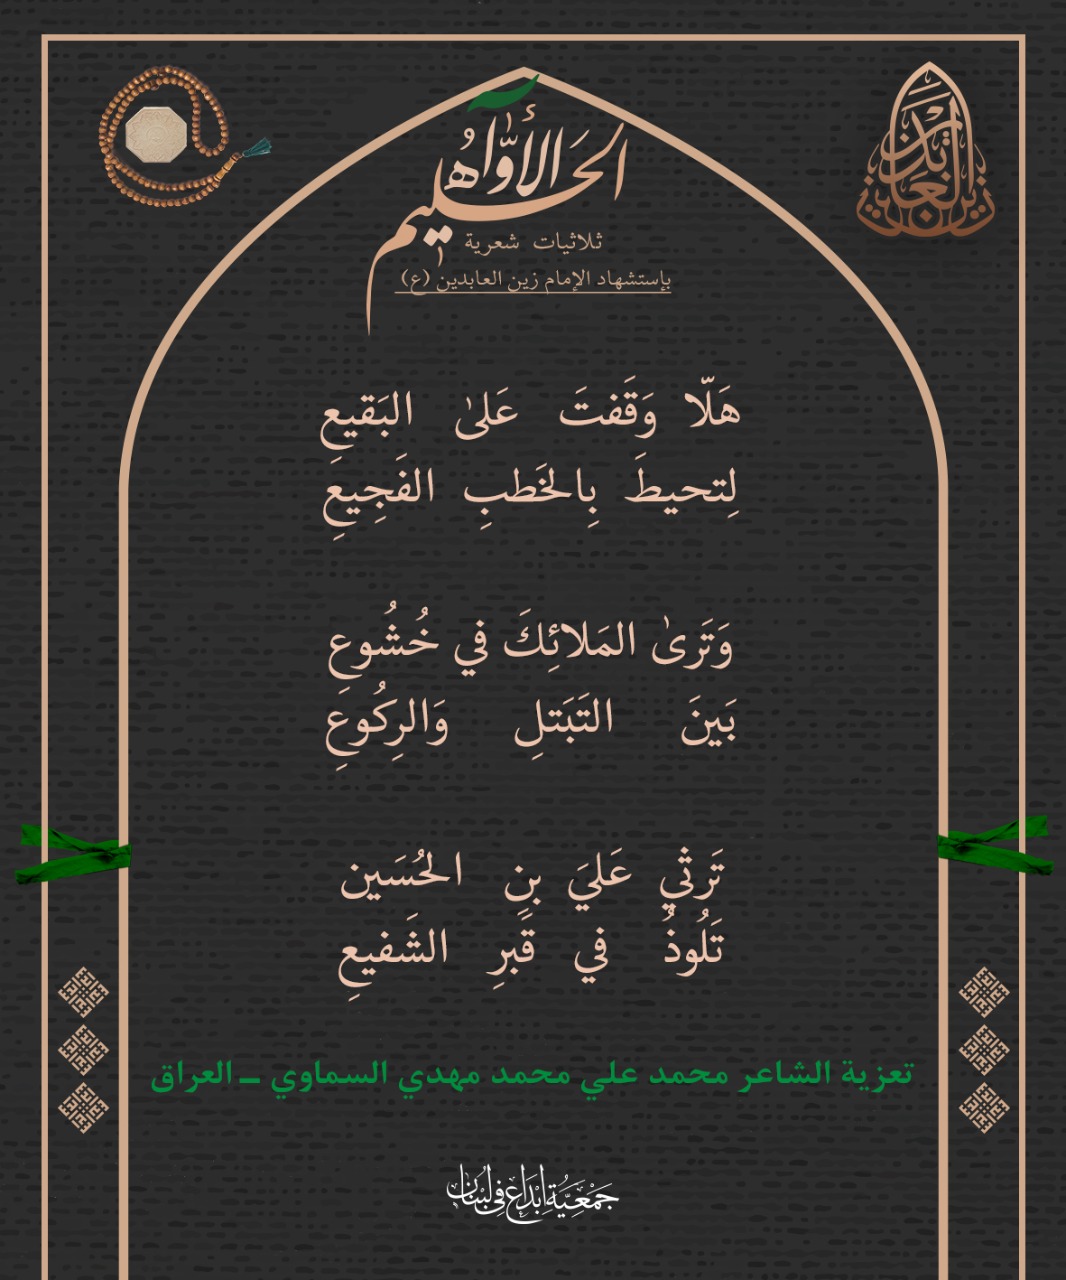 زين العابدين
الأوّاه الحَليم
ثلاثيات شعرية
بإستشهاد الإمام زين العابدين (ع)
هَلّا وَقَفتَ عَلىٰ البَقيعِ
لِتحيطَ بِالخَطبِ الفَجِيعِ
وَتَرىٰ المَلائِكَ في خُشُوعِ
بَينَ التَبَتلِ وَالرِكُوعِ
تَرثي عَليَ بنِ الحُسَين
تَلُوذُ في قَبرِ الشَفيعِ
تعزية الشاعر محمد علي محمد مهدي السماوي ـ العراق
جَمْعِيَّة إبْدَاع فِي لبْنَان